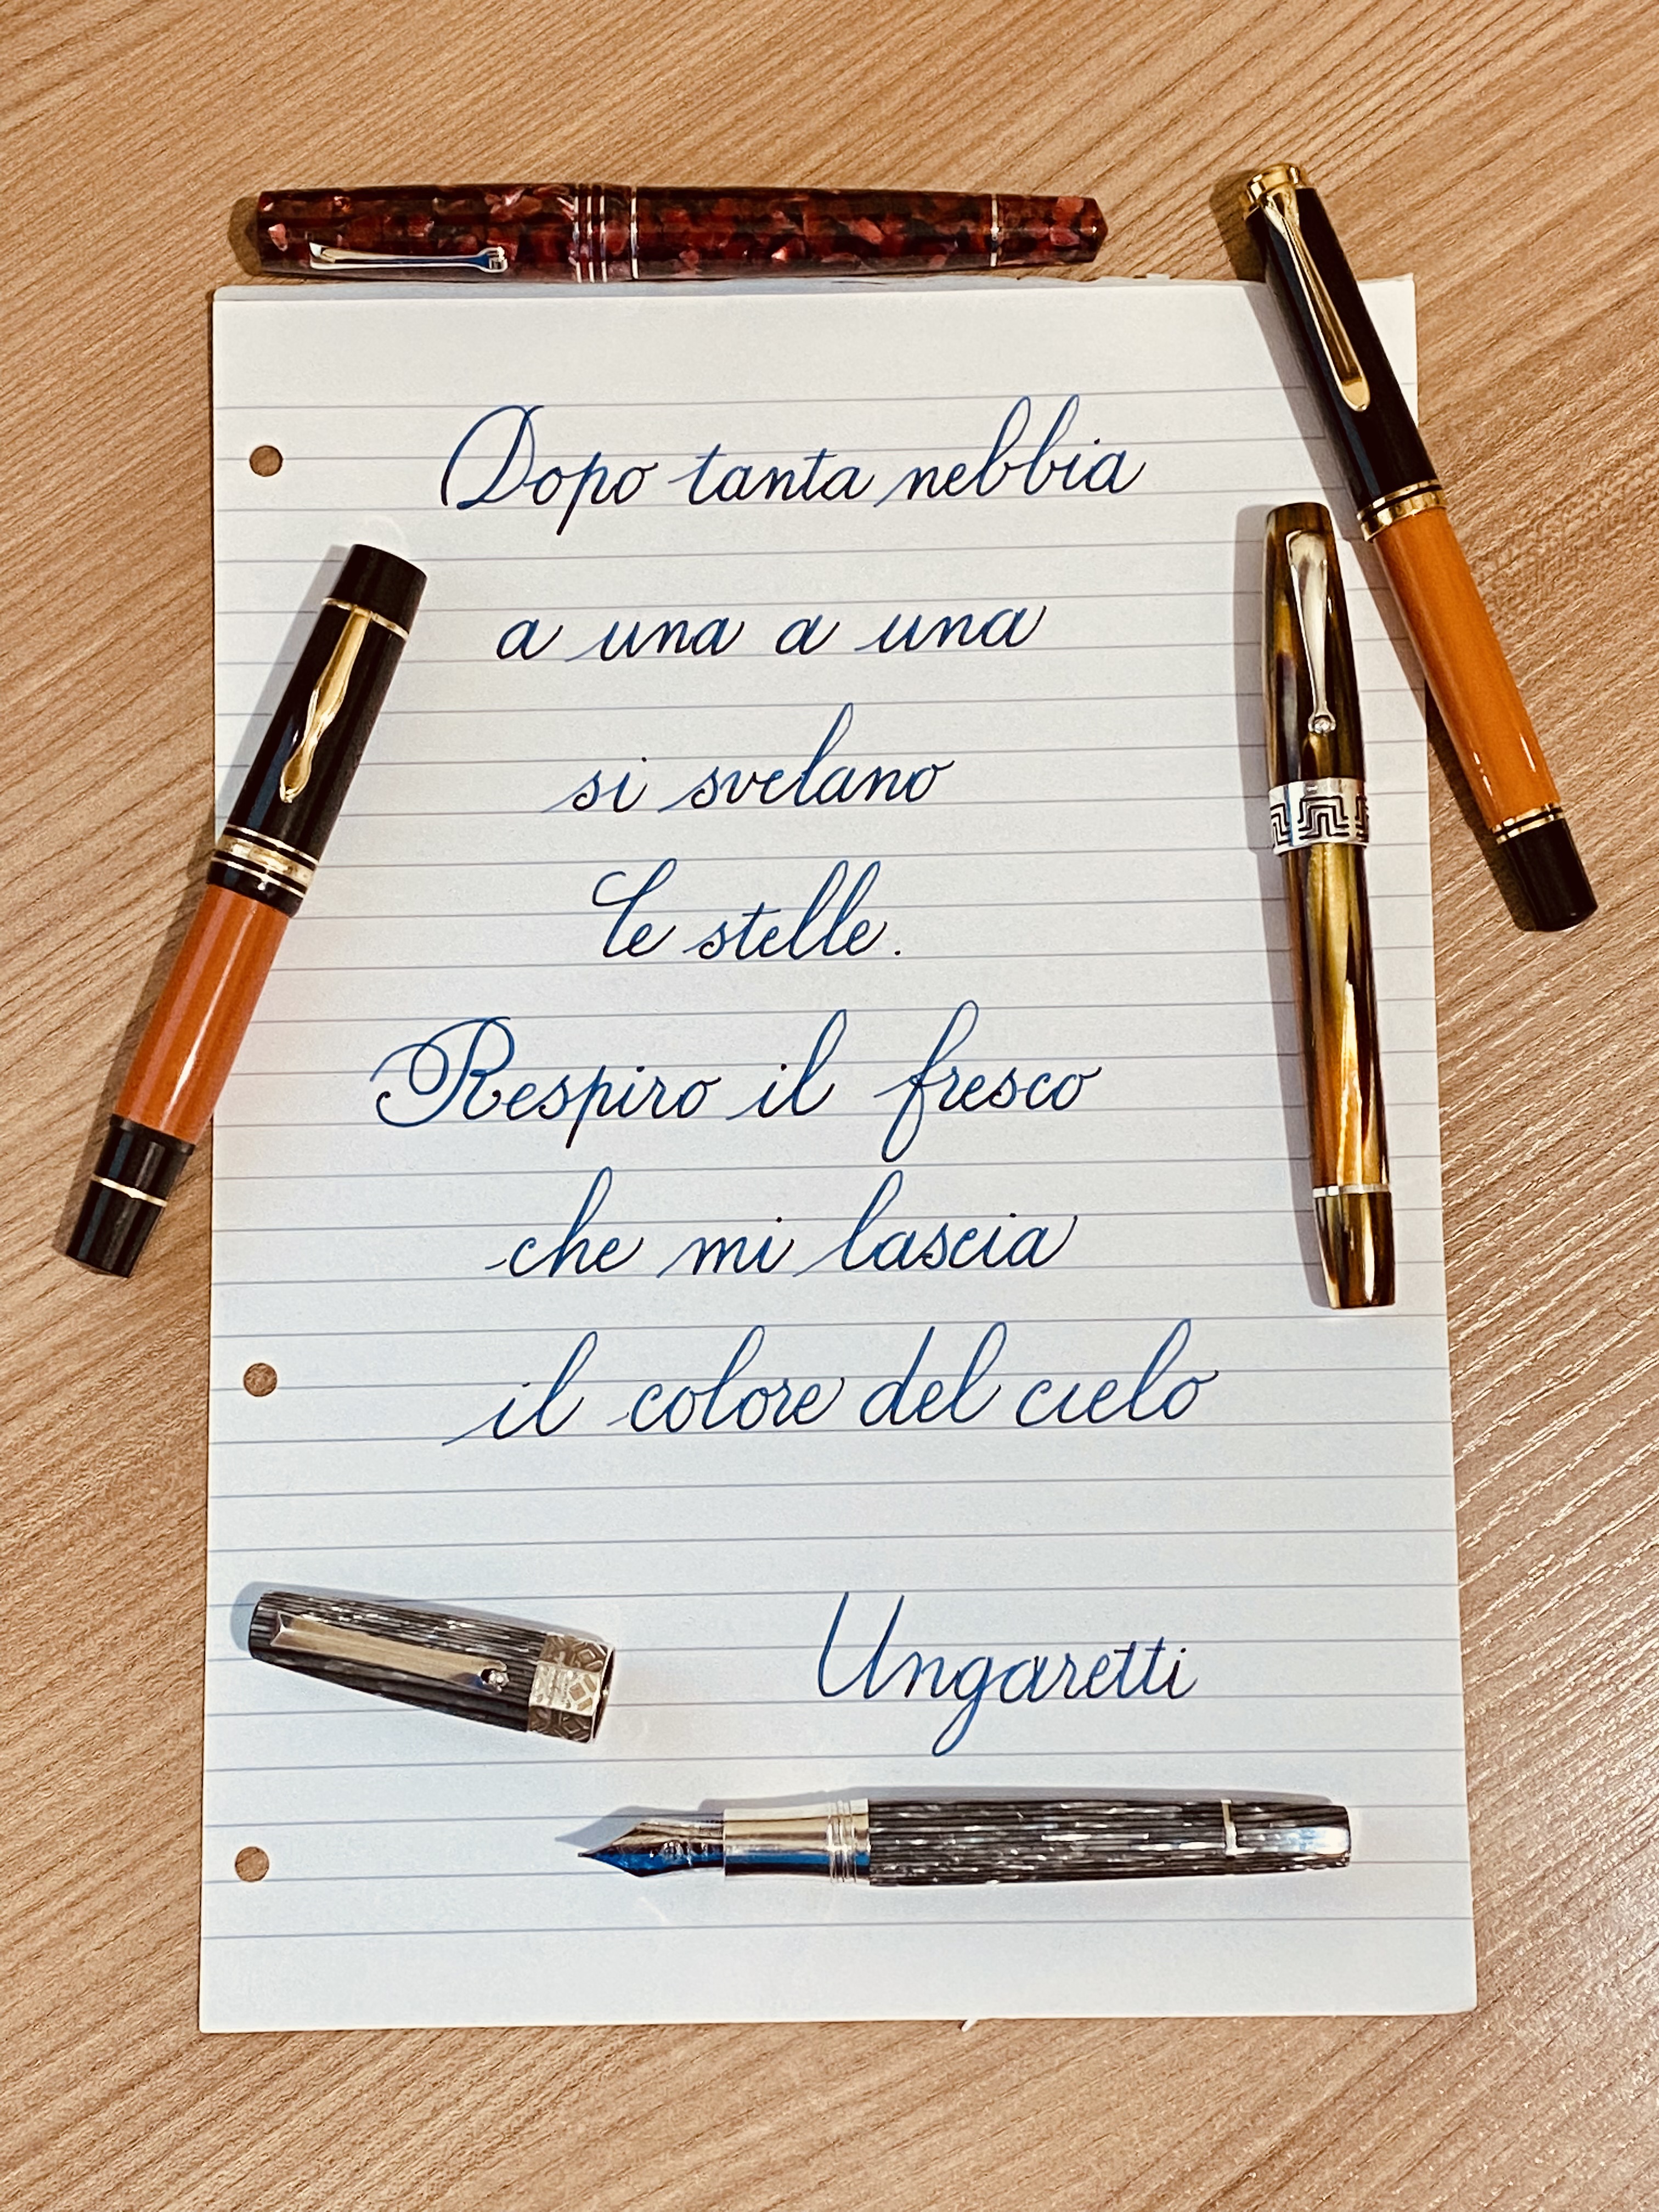 Dopo tanta nebbia
a una a una
si svelano
le stelle.
Respiro il fresco
che mi lascia
il colore del cielo
Ungaretti